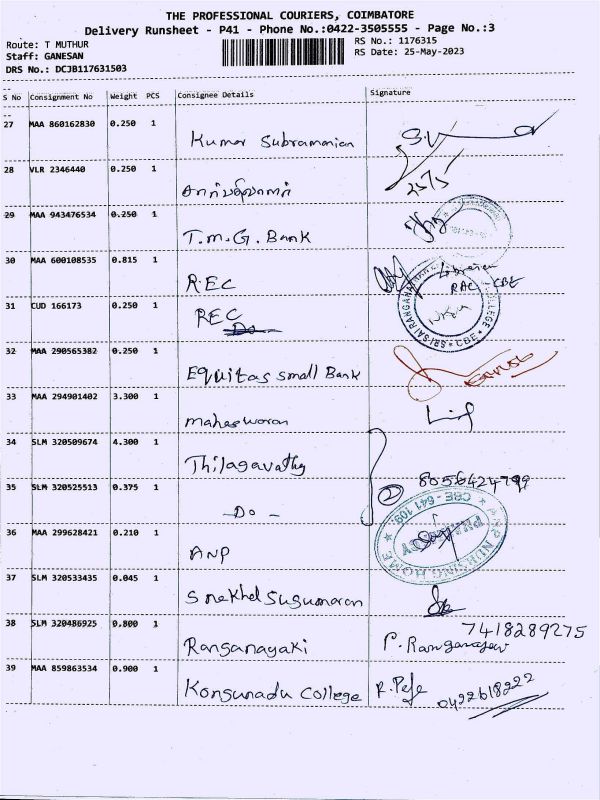 THE PROFESSIONAL COURIERS, COIMBATORE
Delivery Runsheet - P41 - Phone No.:0422-3505555 - Page No.:3
Route: T MUTHUR
RS No.: 1176315
Staff: GANESAN
RS Date: 25-May-2023
DRS No.: DCJB117631503
S No Consignment No Weight PCS Consignee Details Signature
27 MAA 860162830 0.250 1 Kumar Subramanian S.V
28 VLR 2346440 0.250 1
25/5
29 MAA 943476534 0.250 1 T.M.G. Bank
30 MAA 600108535 0.815 1 REC Librarian
RAC CBE
31 CUD 166173 0.250 1 REC
Do
SRI SAI RANGANATHAN COLLEGE * CBE *
32 MAA 290565382 0.250 1 Equitas small Bank
33 MAA 294901402 3.300 1 maheswaran
34 SLM 320509674 4.300 1 Thilagavathy
8056424799
35 SLM 320525513 0.375 1 -Do- 2
36 MAA 299628421 0.210 1 ANP
ANP NURSING HOME * CBE - 641 109. *
PHARMACY
37 SLM 320533435 0.045 1 Snekhal Sugumaran
38 SLM 320486925 0.800 1 Ranganayaki P. Ranganayaki
7418289275
39 MAA 859863534 0.900 1 Kongunadu College
0422618222